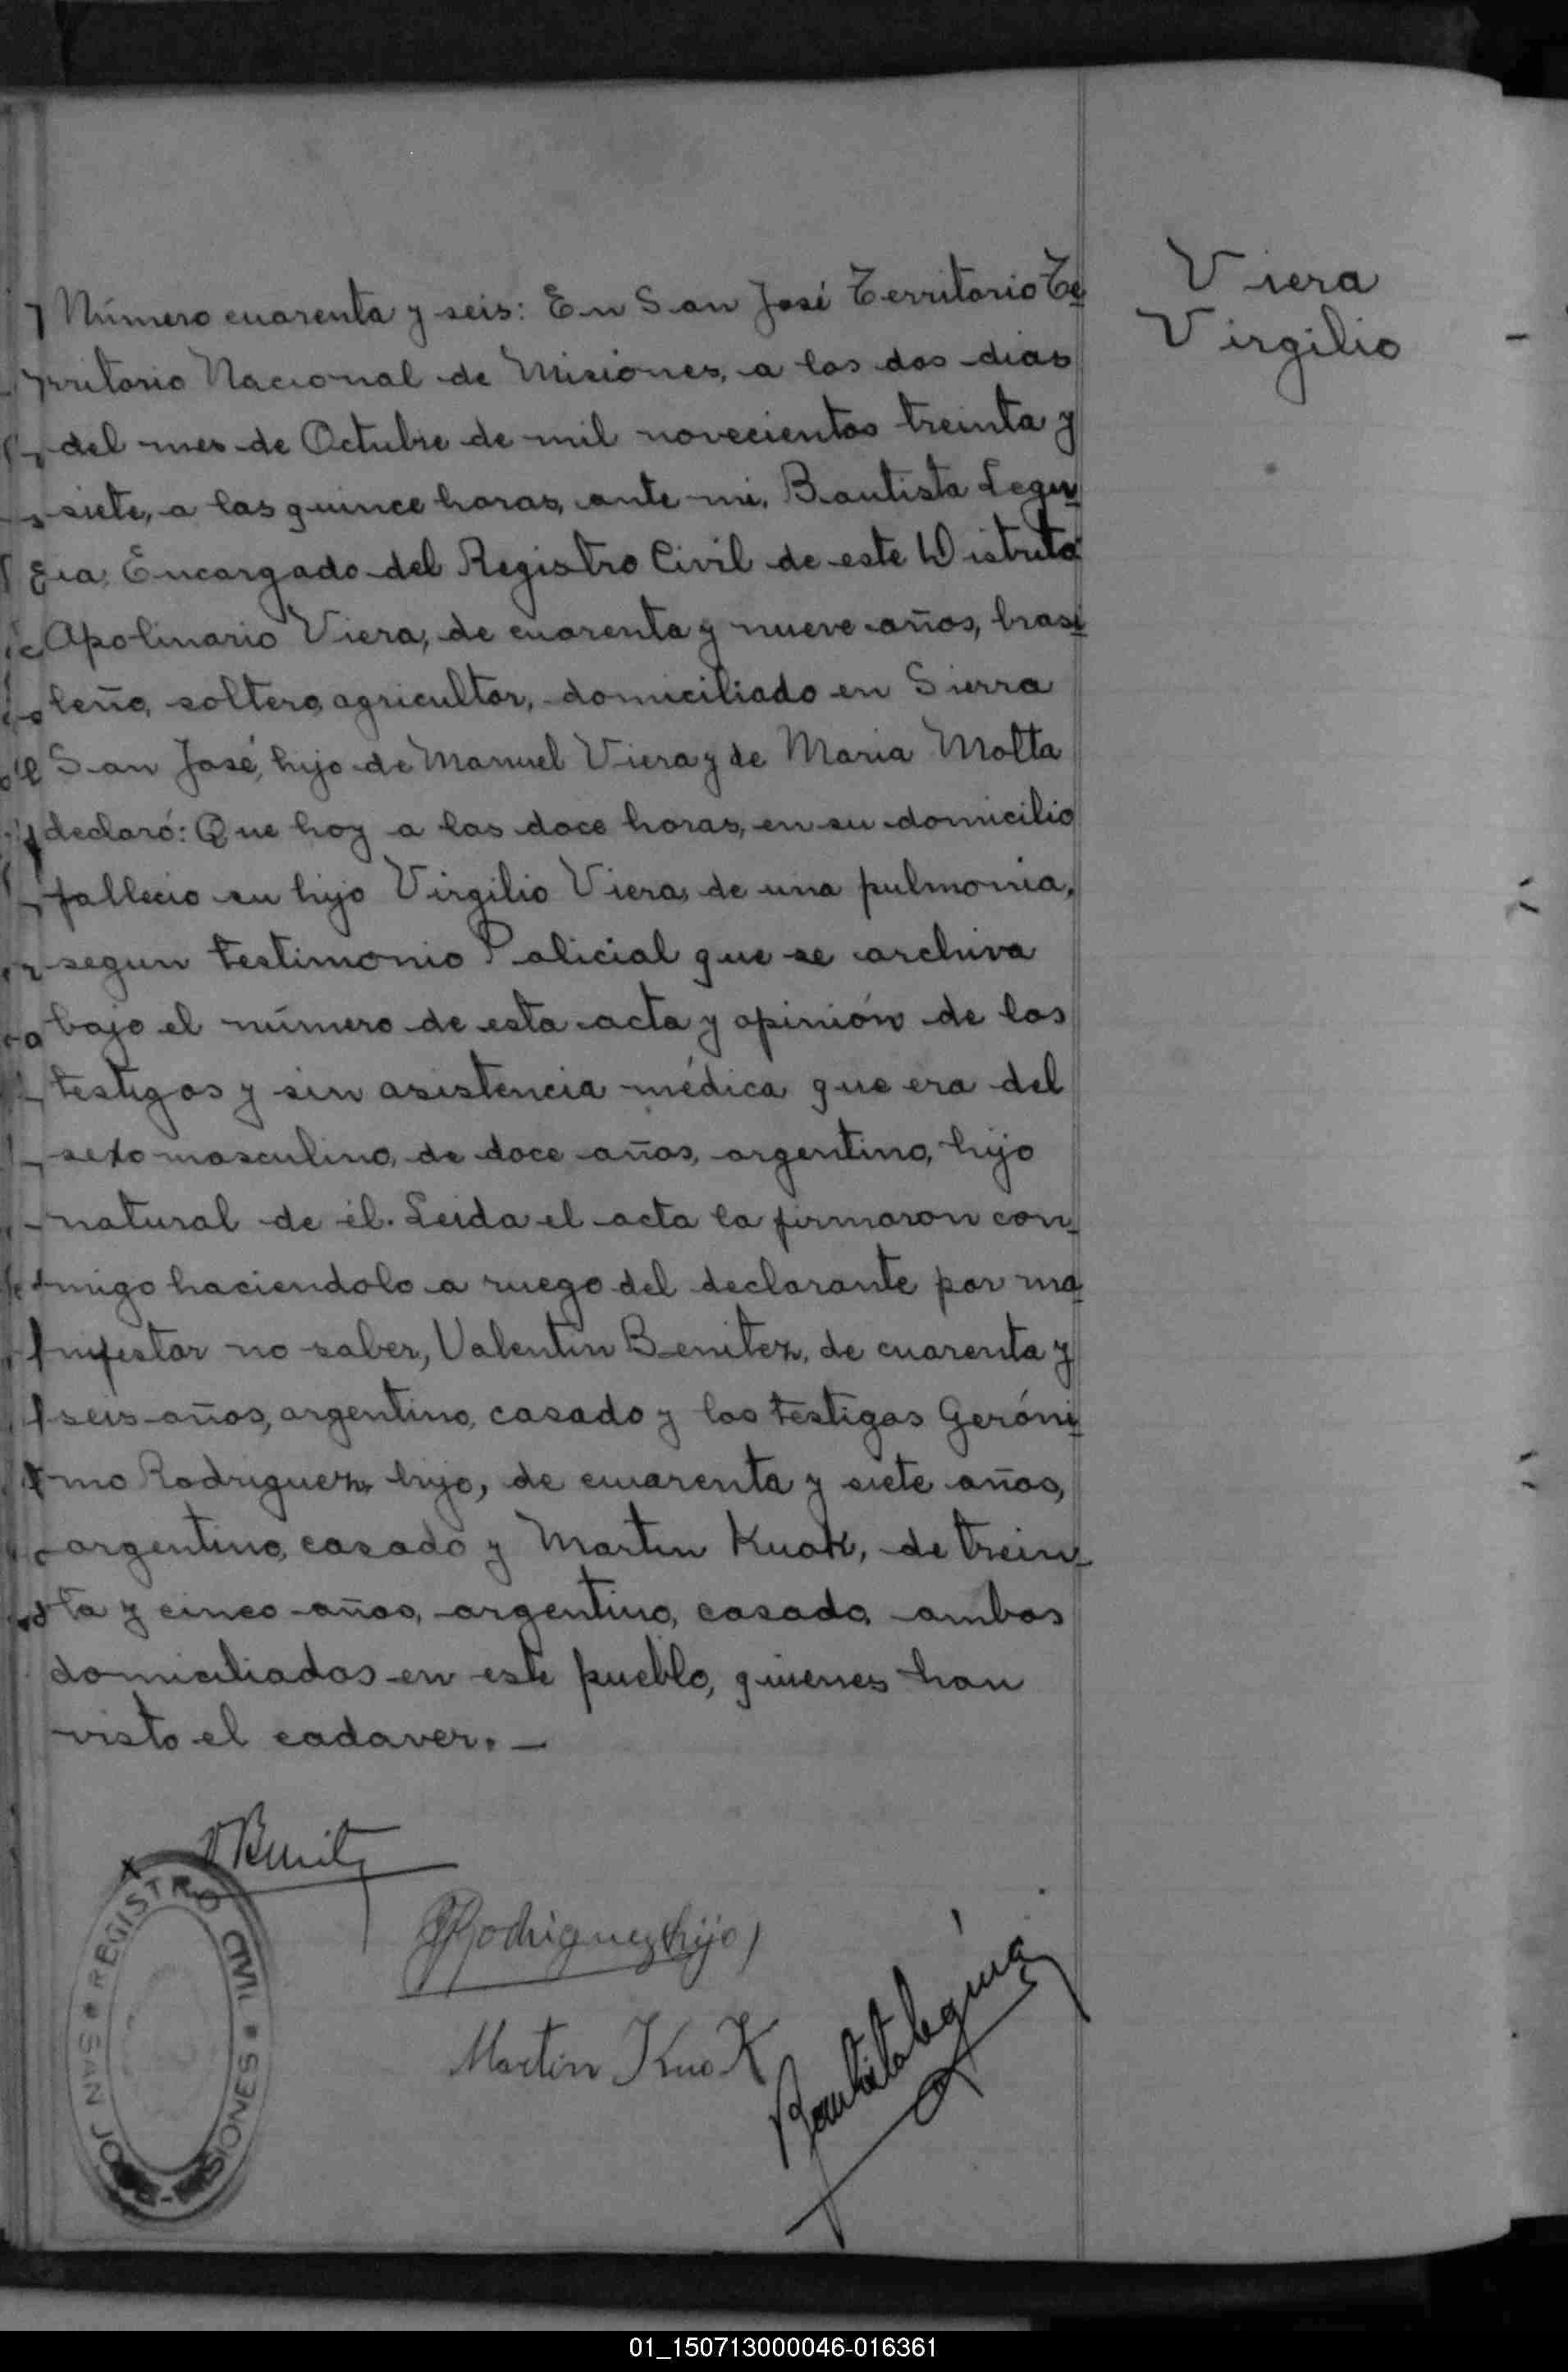 Viera
Virgilio
Número cuarenta y seis: En San José Territorio Te
rritorio Nacional de Misiones, a los dos dias
del mes de Octubre de mil novecientos treinta y
siete, a las quince horas, ante mi, Bautista Legui
Encargado del Registro Civil de este Distrito
Apolinario Viera, de cuarenta y nueve años, brasi
leño, soltero, agricultor, domiciliado en Sierra
San José, hijo de Manuel Viera y de Maria Motta
declaró: Que hoy a las doce horas, en su domicilio
fallecio su hijo Virgilio Viera, de una pulmonia,
segun testimonio Policial que se archiva
bajo el número de esta acta y opinión de los
testigos y sin asistencia médica que era del
sexo masculino, de doce años, argentino, hijo
natural de él. Leida el acta la firmaron con_
migo haciendolo a ruego del declarante por ma
nifestar no saber, Valentin Benitez, de cuarenta y
seis años, argentino, casado y los testigos Geróni
mo Rodriguez, hijo, de cuarenta y siete años,
argentino, casado y Martin Kuok, de trein_
ta y cinco años, argentino, casado, ambos
domiciliados en este pueblo, quienes han
visto el cadaver. _
VBenitz
GRodriguez (hijo)
Martin KuoK
Bautista Leguia
REGISTRO CIVIL * SAN JO - SIONES *
01_150713000046-016361